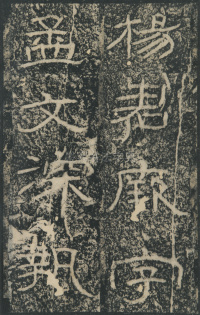 楊君厥字
孟文深執